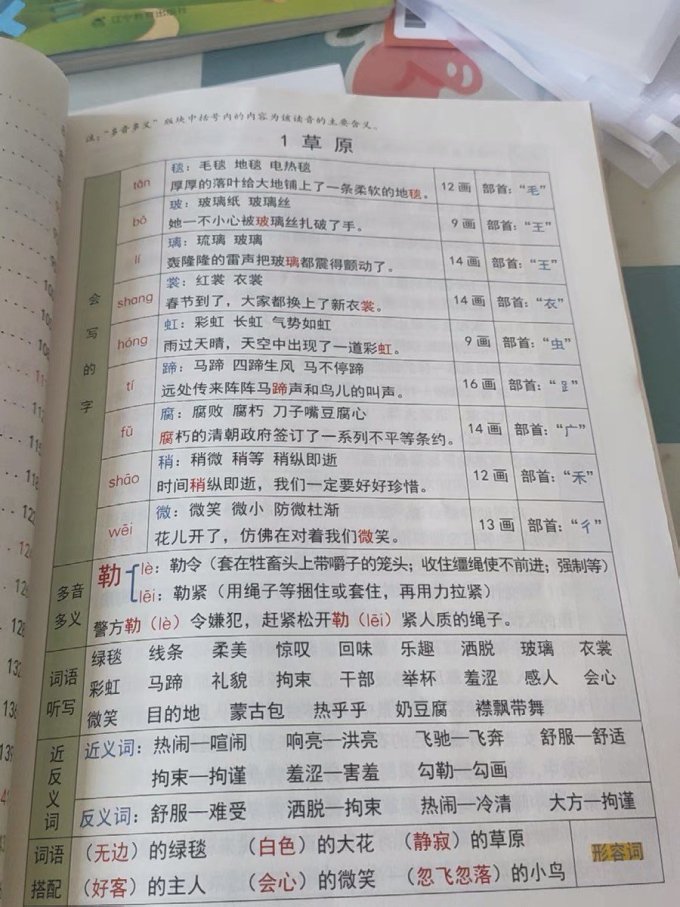 辽宁教育出版社
注：“多音多义”版块中括号内的内容为该读音的主要含义。
1 草原
会写的字
tǎn 毯：毛毯 地毯 电热毯
厚厚的落叶给大地铺上了一条柔软的地毯。 12 画 部首：“毛”
bō 玻：玻璃纸 玻璃丝
她一不小心被玻璃丝扎破了手。 9 画 部首：“王”
lí 璃：琉璃 玻璃
轰隆隆的雷声把玻璃都震得颤动了。 14 画 部首：“王”
shang 裳：红裳 衣裳
春节到了，大家都换上了新衣裳。 14 画 部首：“衣”
hóng 虹：彩虹 长虹 气势如虹
雨过天晴，天空中出现了一道彩虹。 9 画 部首：“虫”
tí 蹄：马蹄 四蹄生风 马不停蹄
远处传来阵阵马蹄声和鸟儿的叫声。 16 画 部首：“⻊”
fǔ 腐：腐败 腐朽 刀子嘴豆腐心
腐朽的清朝政府签订了一系列不平等条约。 14 画 部首：“广”
shāo 稍：稍微 稍等 稍纵即逝
时间稍纵即逝，我们一定要好好珍惜。 12 画 部首：“禾”
wēi 微：微笑 微小 防微杜渐
花儿开了，仿佛在对着我们微笑。 13 画 部首：“彳”
多音多义
勒 lè：勒令（套在牲畜头上带嚼子的笼头；收住缰绳使不前进；强制等）
lēi：勒紧（用绳子等捆住或套住，再用力拉紧）
警方勒（lè）令嫌犯，赶紧松开勒（lēi）紧人质的绳子。
词语听写
绿毯 线条 柔美 惊叹 回味 乐趣 洒脱 玻璃 衣裳
彩虹 马蹄 礼貌 拘束 干部 举杯 羞涩 感人 会心
微笑 目的地 蒙古包 热乎乎 奶豆腐 襟飘带舞
近反义词
近义词：热闹—喧闹 响亮—洪亮 飞驰—飞奔 舒服—舒适
拘束—拘谨 羞涩—害羞 勾勒—勾画
反义词：舒服—难受 洒脱—拘束 热闹—冷清 大方—拘谨
词语搭配
（无边）的绿毯 （白色）的大花 （静寂）的草原
（好客）的主人 （会心）的微笑 （忽飞忽落）的小鸟
形容词